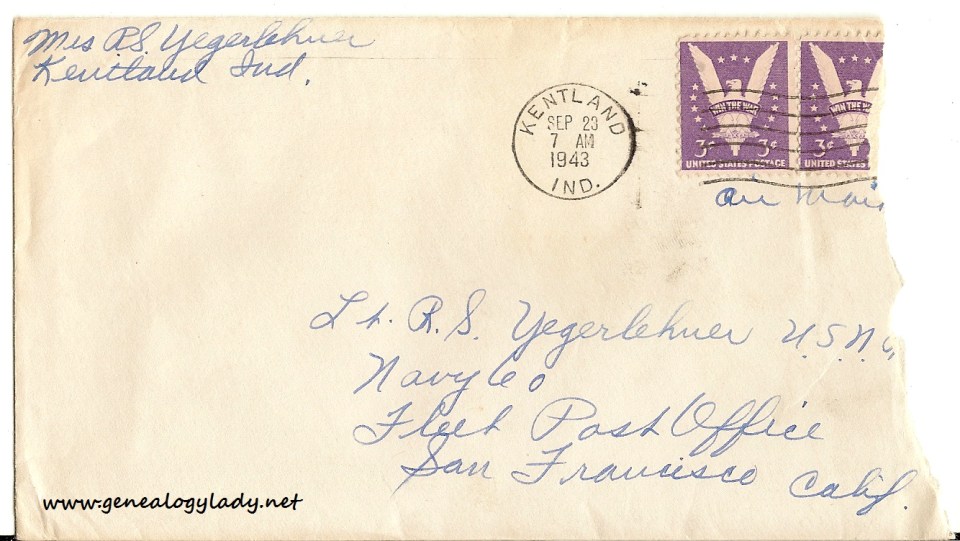 Mrs R.S. Yegerlehner
Kentland Ind.
KENTLAND
SEP 23
7 AM
1943
IND.
WIN THE WAR
3¢ 3¢
UNITED STATES POSTAGE
WIN THE
3¢
UNITED STATES
Air Mai
Lt. R.S. Yegerlehner U.S.N.
Navy 60
Fleet Post Office
San Francisco Calif.
www.genealogylady.net